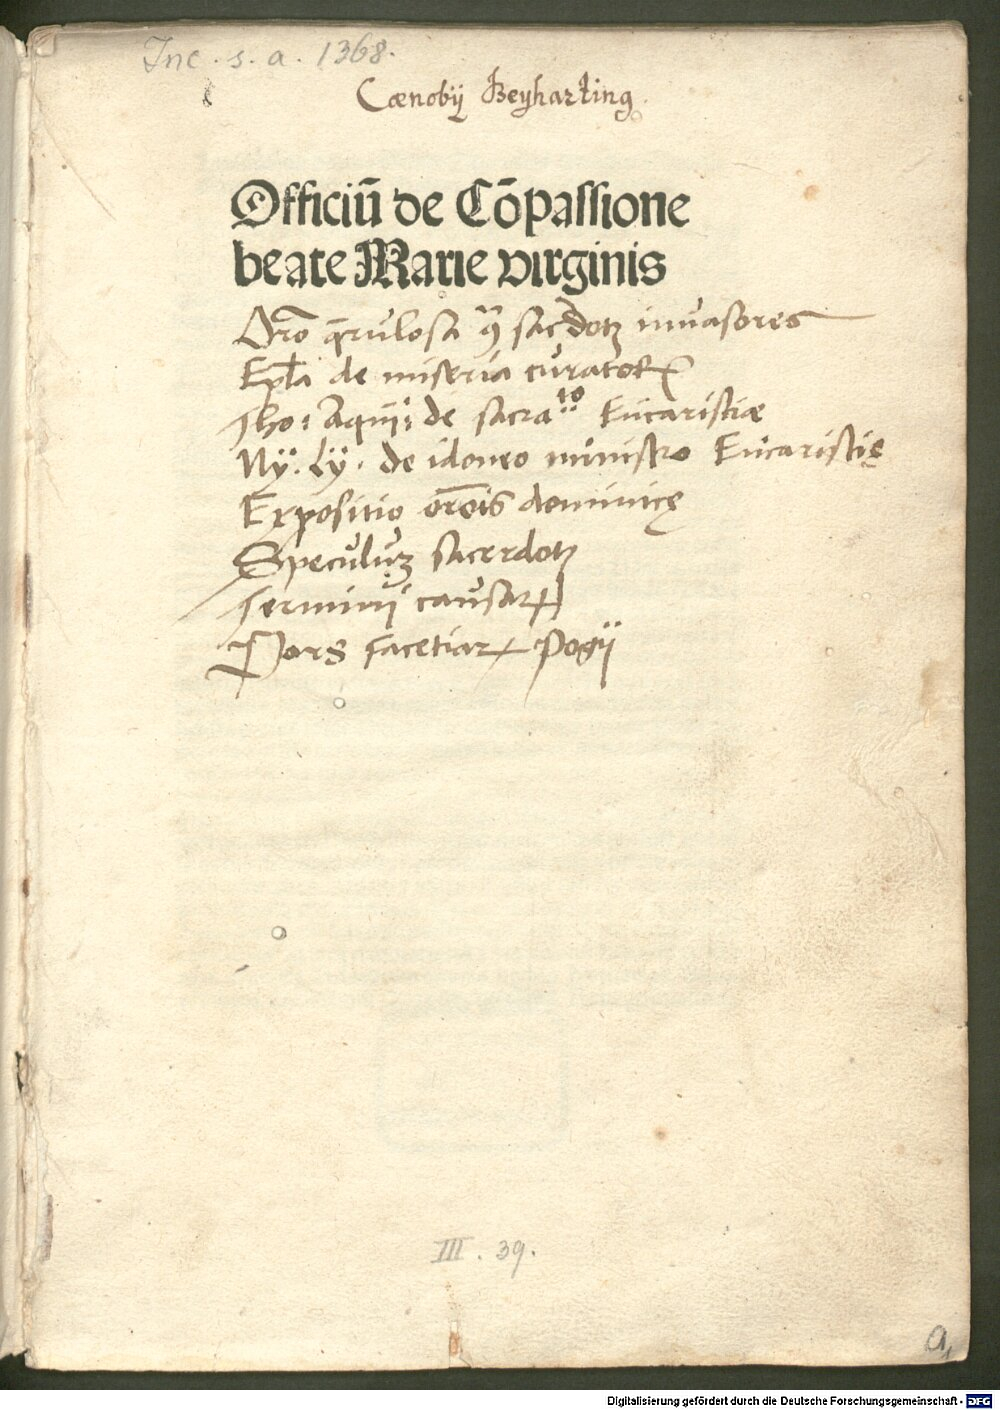 Inc. s. a. 1368.
Cœnobÿ Beyharting.
Officiū de Cōpassione
beate Marie virginis
Oro͞ q̄rulosa ꝯ͞ sac͛dotꝫ invasores
Ep͞la de miseria curatoꝝ
Tho: Aqui: de sacra^to Eucaristiæ
Ny. Ly. de idoneo ministro Eucaristię
Expositio oro͞is dominicę
Speculuꝫ sacerdotꝫ
Terminij causaꝝ
Pars facetiaꝝ Pogij
III. 39.
a
Digitalisierung gefördert durch die Deutsche Forschungsgemeinschaft - DFG